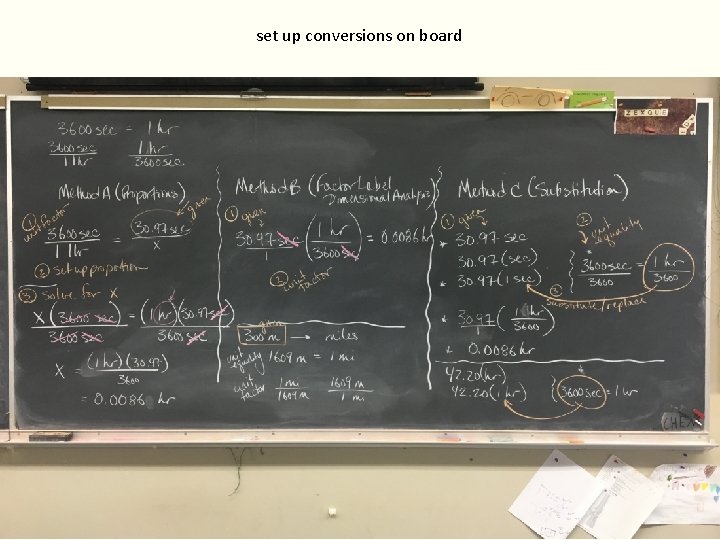 set up conversions on board
ZEXQUE
3600 sec = 1 hr
3600 sec / 1 hr    1 hr / 3600 sec
Method A (Proportions)
① unit factor
given
3600 sec / 1 hr = 30.97 sec / x
② set up proportion
③ Solve for X
X (3600 sec) / 3600 sec = (1 hr)(30.97 sec) / 3600 sec
X = (1 hr)(30.97) / 3600
= 0.0086 hr
Method B (Factor Label
Dimensional Analysis)
① given
30.97 sec / 1 (1 hr / 3600 sec) = 0.0086 hr
② unit factor
given
300 m → miles
unit equality 1609 m = 1 mi
unit factor 1 mi / 1609 m    1609 m / 1 mi
Method C (Substitution)
① given
* 30.97 sec
30.97 (sec)
* 30.97 (1 sec)
② unit equality
3600 sec / 3600 = 1 hr / 3600
③ substitute/replace
* 30.97 / 1 (1 hr / 3600)
* 0.0086 hr
42.20 (hr)
42.20 (1 hr)
3600 sec = 1 hr
CHEM